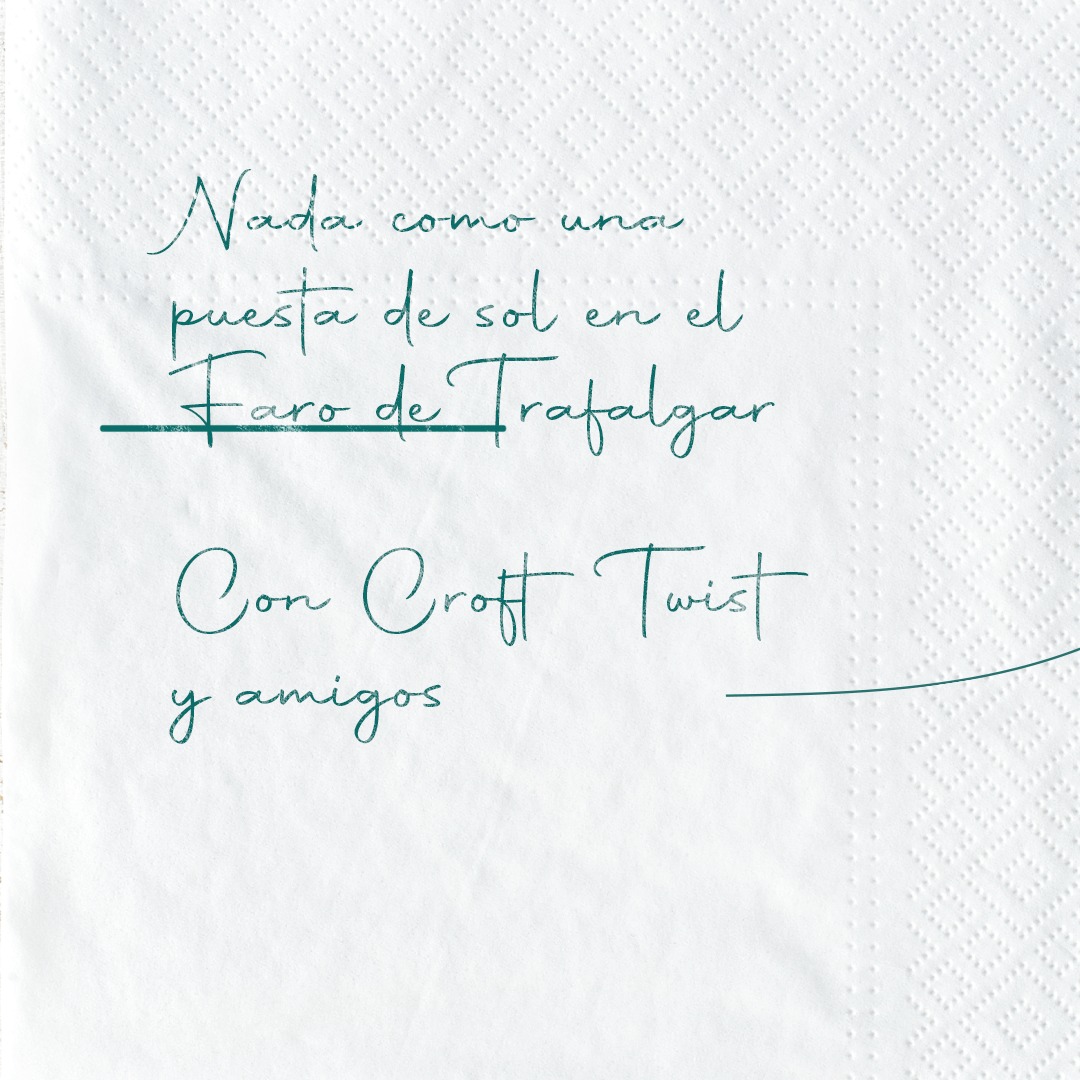 Nada como una
puesta de sol en el
Faro de Trafalgar
Con Croft Twist
y amigos